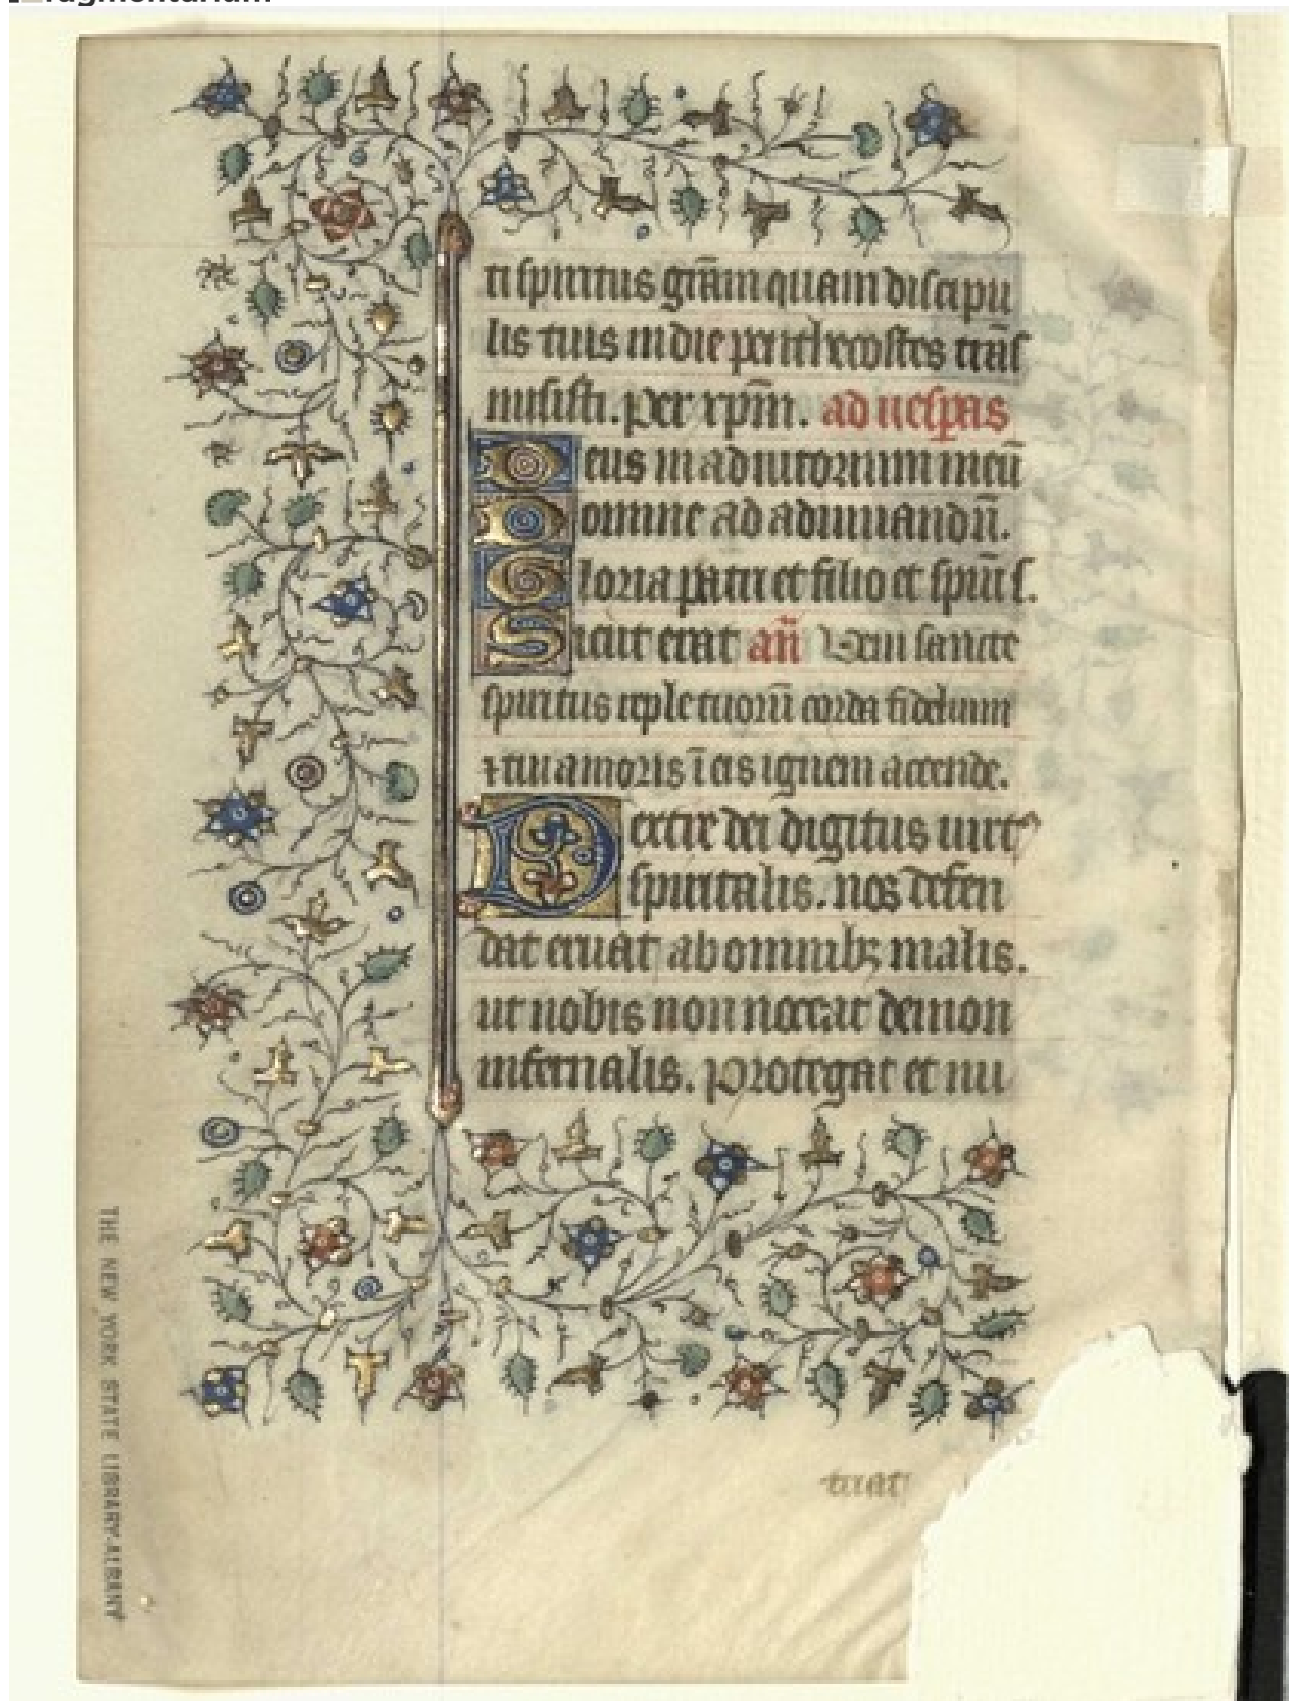 ragmentarium
ti spiritus grãm quam discipu
lis tuis in die penthecostes trãs
misisti. Per xpm̃. ad uesp̃as
Deus in adiutorium meũ
Domine ad adiuuandũ.
Gloria patri et filio et spiũ s.
Sicut erat añ Veni sancte
spiritus reple tuorũ corda fidelium
⁊ tui amoris ĩ eis ignem accende.
Dextre dei digitus uirtꝰ
spiritalis. nos defen
dat eruat ab omnibꝫ malis.
ut nobis non noceat demon
infernalis. Protegat et nu
triat
THE NEW YORK STATE LIBRARY-ALBANY